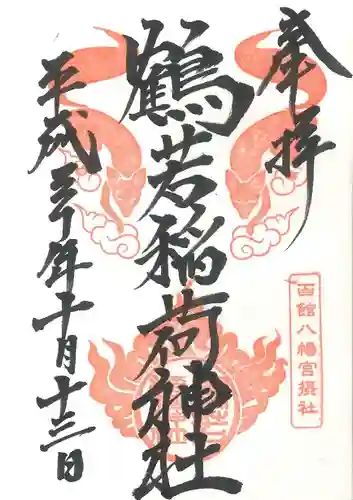 奉拝
鶴若稲荷神社
平成三十年十月十三日
函館八幡宮摂社